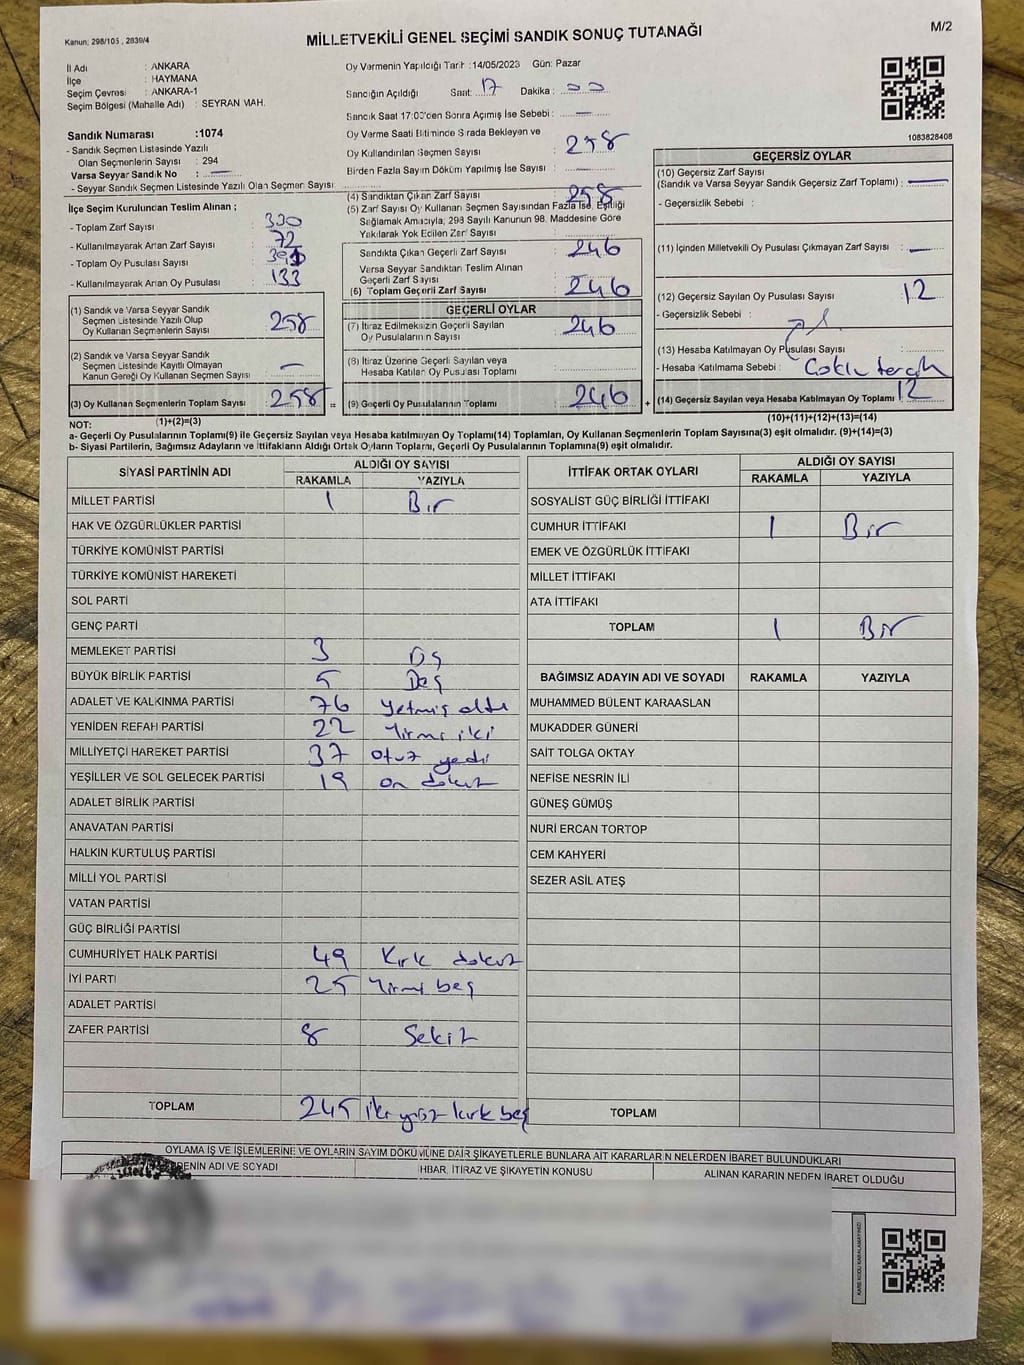 Kanun: 298/105 , 2839/4
MİLLETVEKİLİ GENEL SEÇİMİ SANDIK SONUÇ TUTANAĞI
M/2
İl Adı : ANKARA
İlçe : HAYMANA
Seçim Çevresi : ANKARA-1
Seçim Bölgesi (Mahalle Adı) : SEYRAN MAH.
Sandık Numarası :1074
- Sandık Seçmen Listesinde Yazılı
Olan Seçmenlerin Sayısı : 294
Varsa Seyyar Sandık No : —
- Seyyar Sandık Seçmen Listesinde Yazılı Olan Seçmen Sayısı:
Oy Vermenin Yapıldığı Tarih :14/05/2023 Gün: Pazar
Sandığın Açıldığı Saat: 17 Dakika : 00
Sandık Saat 17:00'den Sonra Açılmış İse Sebebi : —
Oy Verme Saati Bitiminde Sırada Bekleyen ve
Oy Kullandırılan Seçmen Sayısı : 258
Birden Fazla Sayım Döküm Yapılmış İse Sayısı : —
1083828408
İlçe Seçim Kurulundan Teslim Alınan ;
- Toplam Zarf Sayısı : 330
- Kullanılmayarak Artan Zarf Sayısı : 72
- Toplam Oy Pusulası Sayısı :
- Kullanılmayarak Artan Oy Pusulası : 133
(1) Sandık ve Varsa Seyyar Sandık
Seçmen Listesinde Yazılı Olup
Oy Kullanan Seçmenlerin Sayısı : 258
(2) Sandık ve Varsa Seyyar Sandık
Seçmen Listesinde Kayıtlı Olmayan
Kanun Gereği Oy Kullanan Seçmen Sayısı : —
(3) Oy Kullanan Seçmenlerin Toplam Sayısı : 258 =
(1)+(2)=(3)
(4) Sandıktan Çıkan Zarf Sayısı : 258
(5) Zarf Sayısı Oy Kullanan Seçmen Sayısından Fazla İse, Eşitliği
Sağlamak Amacıyla, 298 Sayılı Kanunun 98. Maddesine Göre
Yakılarak Yok Edilen Zarf Sayısı :
Sandıkta Çıkan Geçerli Zarf Sayısı : 246
Varsa Seyyar Sandıktan Teslim Alınan
Geçerli Zarf Sayısı :
(6) Toplam Geçerli Zarf Sayısı : 246
GEÇERLİ OYLAR
(7) İtiraz Edilmeksizin Geçerli Sayılan
Oy Pusulalarının Sayısı : 246
(8) İtiraz Üzerine Geçerli Sayılan veya
Hesaba Katılan Oy Pusulası Toplamı :
(9) Geçerli Oy Pusulalarının Toplamı : 246 +
GEÇERSİZ OYLAR
(10) Geçersiz Zarf Sayısı
(Sandık ve Varsa Seyyar Sandık Geçersiz Zarf Toplamı) : —
- Geçersizlik Sebebi :
(11) İçinden Milletvekili Oy Pusulası Çıkmayan Zarf Sayısı : —
(12) Geçersiz Sayılan Oy Pusulası Sayısı : 12
- Geçersizlik Sebebi :
(13) Hesaba Katılmayan Oy Pusulası Sayısı :
- Hesaba Katılmama Sebebi : Çoklu tercih
(14) Geçersiz Sayılan veya Hesaba Katılmayan Oy Toplamı : 12
(10)+(11)+(12)+(13)=(14)
NOT:
a- Geçerli Oy Pusulalarının Toplamı(9) ile Geçersiz Sayılan veya Hesaba katılmayan Oy Toplamı(14) Toplamları, Oy Kullanan Seçmenlerin Toplam Sayısına(3) eşit olmalıdır. (9)+(14)=(3)
b- Siyasi Partilerin, Bağımsız Adayların ve İttifakların Aldığı Ortak Oyların Toplamı, Geçerli Oy Pusulalarının Toplamına(9) eşit olmalıdır.
SİYASİ PARTİNİN ADI ALDIĞI OY SAYISI
RAKAMLA YAZIYLA
MİLLET PARTİSİ 1 Bir
HAK VE ÖZGÜRLÜKLER PARTİSİ
TÜRKİYE KOMÜNİST PARTİSİ
TÜRKİYE KOMÜNİST HAREKETİ
SOL PARTİ
GENÇ PARTİ
MEMLEKET PARTİSİ 3 Üç
BÜYÜK BİRLİK PARTİSİ 5 Beş
ADALET VE KALKINMA PARTİSİ 76 Yetmiş altı
YENİDEN REFAH PARTİSİ 22 Yirmi iki
MİLLİYETÇİ HAREKET PARTİSİ 37 Otuz yedi
YEŞİLLER VE SOL GELECEK PARTİSİ 19 on dokuz
ADALET BİRLİK PARTİSİ
ANAVATAN PARTİSİ
HALKIN KURTULUŞ PARTİSİ
MİLLİ YOL PARTİSİ
VATAN PARTİSİ
GÜÇ BİRLİĞİ PARTİSİ
CUMHURİYET HALK PARTİSİ 49 Kırk dokuz
İYİ PARTİ 25 Yirmi beş
ADALET PARTİSİ
ZAFER PARTİSİ 8 Sekiz
TOPLAM 245 iki yüz kırk beş
İTTİFAK ORTAK OYLARI ALDIĞI OY SAYISI
RAKAMLA YAZIYLA
SOSYALİST GÜÇ BİRLİĞİ İTTİFAKI
CUMHUR İTTİFAKI 1 Bir
EMEK VE ÖZGÜRLÜK İTTİFAKI
MİLLET İTTİFAKI
ATA İTTİFAKI
TOPLAM 1 Bir
BAĞIMSIZ ADAYIN ADI VE SOYADI RAKAMLA YAZIYLA
MUHAMMED BÜLENT KARAASLAN
MUKADDER GÜNERİ
SAİT TOLGA OKTAY
NEFİSE NESRİN İLİ
GÜNEŞ GÜMÜŞ
NURİ ERCAN TORTOP
CEM KAHYERİ
SEZER ASİL ATEŞ
TOPLAM
OYLAMA İŞ VE İŞLEMLERİNE VE OYLARIN SAYIM DÖKÜMÜNE DAİR ŞİKAYETLERLE BUNLARA AİT KARARLARIN NELERDEN İBARET BULUNDUKLARI
ADI VE SOYADI
İHBAR, İTİRAZ VE ŞİKAYETİN KONUSU
ALINAN KARARIN NEDEN İBARET OLDUĞU
KARE KODU KARALAMAYINIZ!